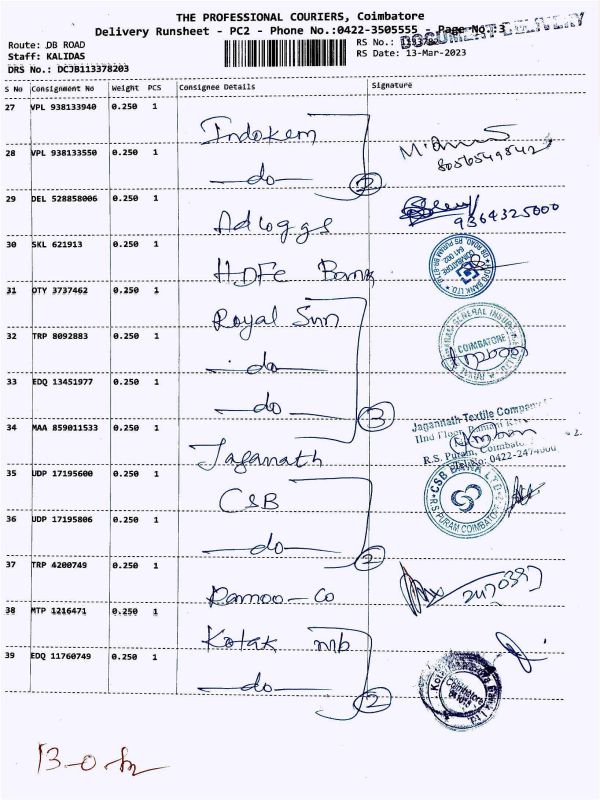 THE PROFESSIONAL COURIERS, Coimbatore
Delivery Runsheet - PC2 - Phone No.:0422-3505555 Page No. 3
DOCUMENT DELIVERY
Route: DB ROAD RS No.:
Staff: KALIDAS RS Date: 13-Mar-2023
DRS No.: DCJB113378203
S No Consignment No Weight PCS Consignee Details Signature
27 VPL 938133940 0.250 1 Indokem
28 VPL 938133550 0.250 1 do 2 8056549842
29 DEL 528858006 0.250 1 Adloggs 9364325000
30 SKL 621913 0.250 1 HDFC Bank
31 DTY 3737462 0.250 1 Royal Sun
32 TRP 8092883 0.250 1 do COIMBATORE
33 EDQ 13451977 0.250 1 do 3
34 MAA 859011533 0.250 1 Jaganath
Jagannath Textile Company
IInd Floor,
R.S. Puram, Coimbatore
35 UDP 17195600 0.250 1 CSB
CSB BANK LTD
R.S. PURAM COIMBATORE
36 UDP 17195806 0.250 1 do 2
37 TRP 4200749 0.250 1 Ramoo-Co
38 MTP 1216471 0.250 1 Kotak mb
39 EDQ 11760749 0.250 1 do 2
Coimbatore